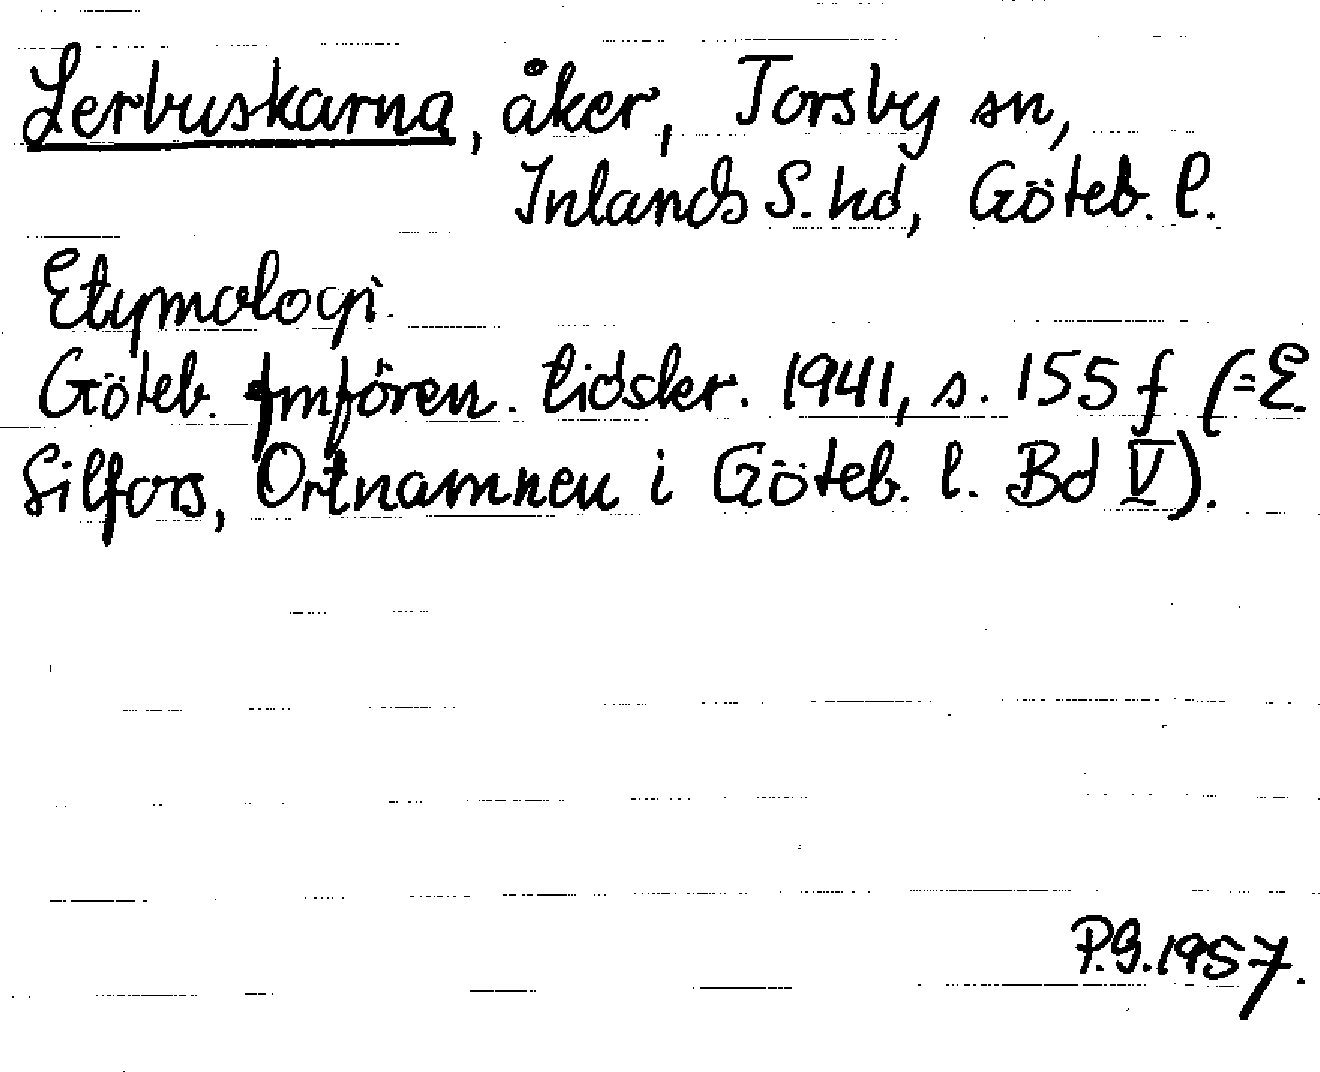 Lerbuskarna, åker, Torsby sn,
Inlands S. hd, Göteb. l.
Etymologi.
Göteb. fmfören. tidskr. 1941, s. 155 f (=E.
Silfors, Ortnamnen i Göteb. l. Bd V).
P.G.1957.